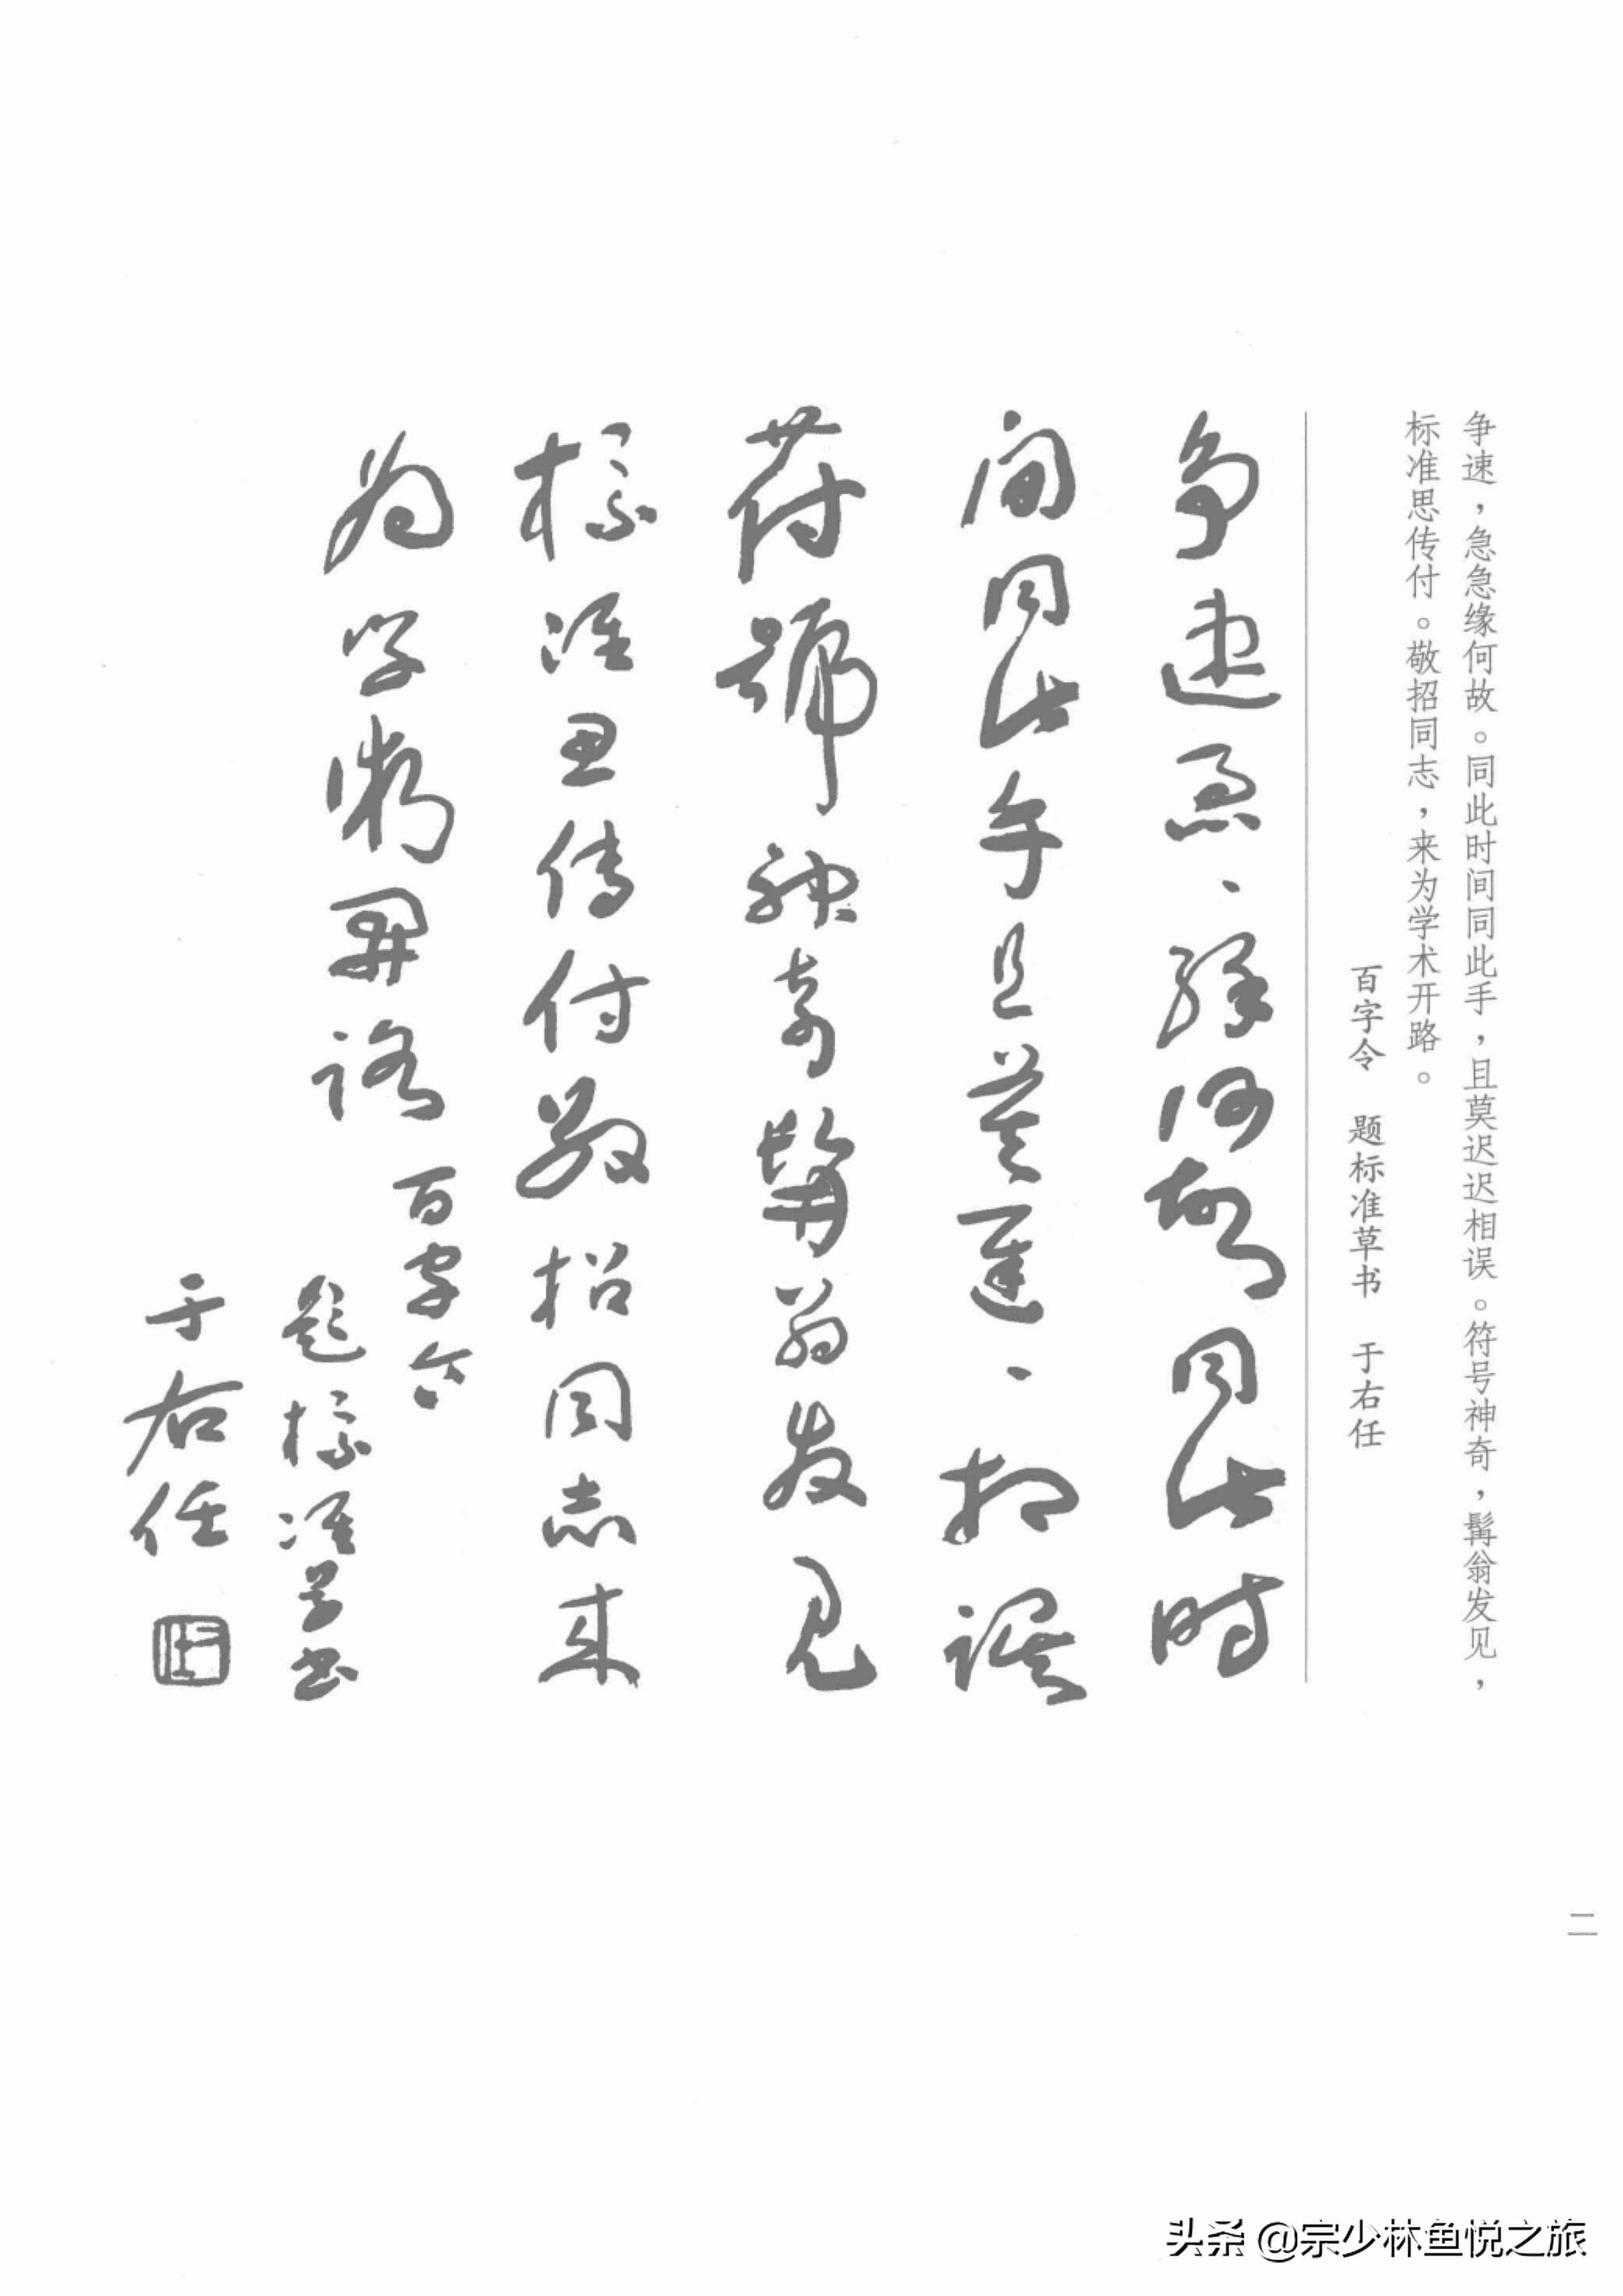 争速，急急缘何故。同此时间同此手，且莫迟迟相误。符号神奇，髯翁发见，
标准思传付。敬招同志，来为学术开路。
百字令　题标准草书　于右任
争速急、缘何故同此时
间同此手且莫迟、相误
符號神奇髯翁发见
标准思传付敬招同志来
为学术开路
百字令
题标准草书
于右任
二
头条 @宗少林鱼悦之旅